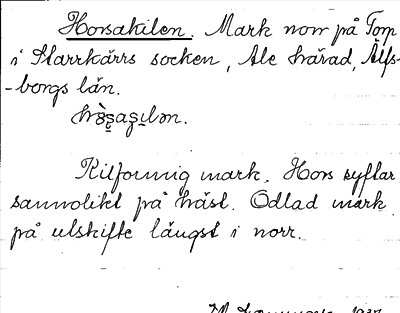 Horsakilen. Mark norr på Torp
i Starrkärrs socken, Ale härad, Älfs-
-borgs län.

Kilformig mark. Hors syftar
sannolikt på häst. Odlad mark
på utskifte längst i norr.